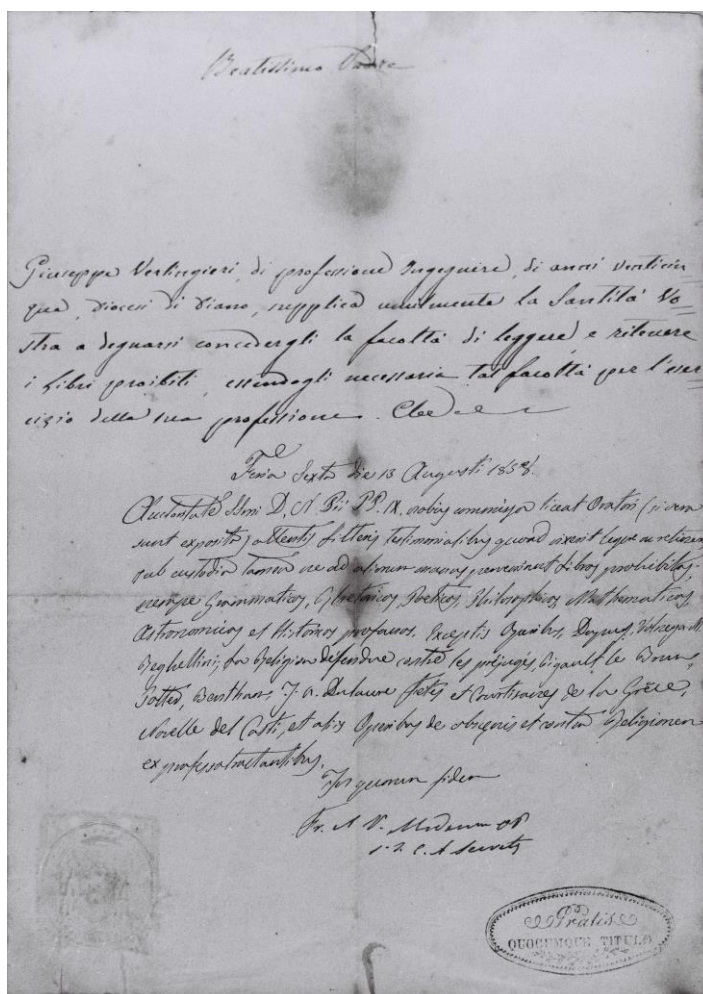 Beatissimo Padre
Giuseppe Vertingieri, di professione Ingegnere, di anni venticin
que, Diocesi di Diano, supplica umilmente la Santità Vo=
stra a degnarsi concedergli la facoltà di leggere, e ritenere
i Libri proibiti, essendogli necessaria tal facoltà per l'eser=
cizio della sua professione. Che
Feria Sexta die 13 Augusti 1858.
Auctoritate SSmi D. N. Pii PP. IX. nobis commissa liceat Oratori (si vera
sunt exposita) attentis Litteris testimonialibus quoad vixerit legere ac retinere
sub custodia tamen ne ad aliorum manus perveniant Libros prohibitos
nempe Grammaticos, Poeticos, Philosophicos, Mathematicos,
Astronomicos et Historicos profanos. Exceptis Operibus, Dupuis, Volney, M.
Reghellini, La Religion défendue contre les préjugés, Pigault le Brun,
Potter, Bentham, J. A. Dulaure Fêtes et Courtisanes de la Grèce,
Novelle del Casti, et aliis Operibus de obscenis et contra Religionem
ex professo tractantibus.
In quorum fidem
Fr. A. V. Modena OP
S. I. C. A Secretis
Gratis
QUOCUMQUE TITULO